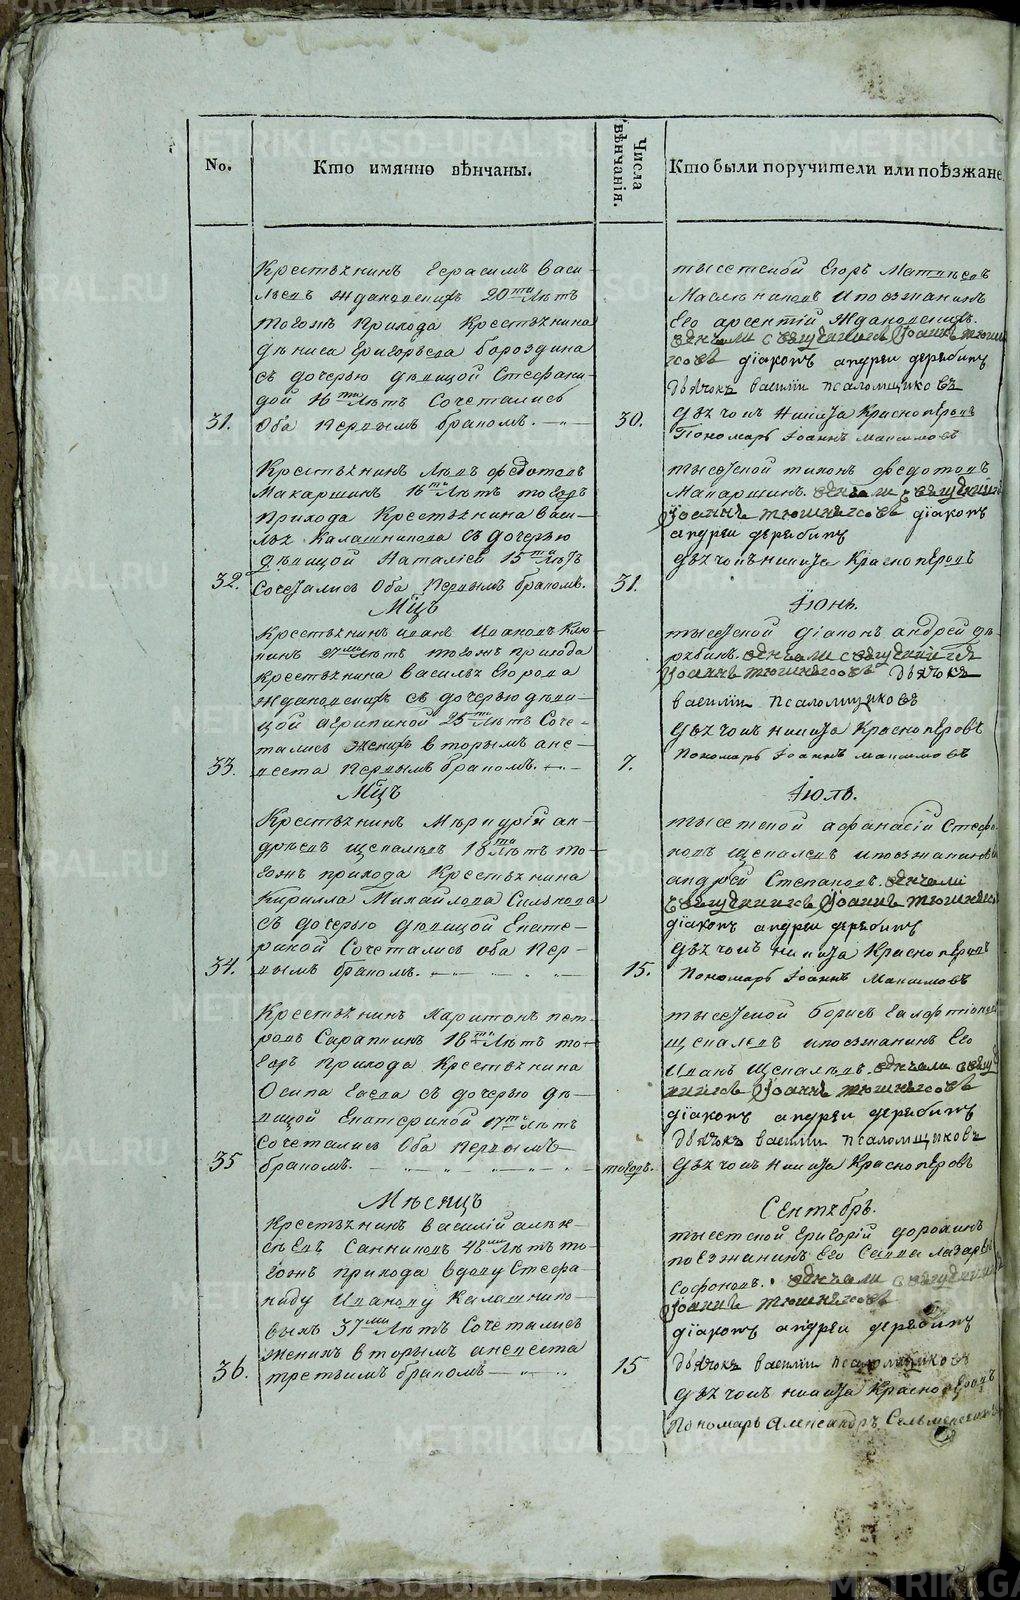 No.
Кто имянно вѣнчаны.
Числа вѣнчанія.
Кто были поручители или поѣзжане.
Крестьянинъ Герасимъ Васи-
льевъ Ждановскихъ 20ти Лѣтъ
тогожъ прихода Крестьянина
Дениса Григорьева Бороздина
съ дочерью дѣвицой Стефани-
дой 16ти Лѣтъ Сочетались
31. Оба первымъ бракомъ.
30.
тысетской Егоръ Матвѣевъ
Масленниковъ и поезжанинъ
Его Арсентій Ждановскихъ.
венчали священникъ Іоаннъ Тюшня-
ковъ діаконъ андреи дерябинъ
дьячокъ василіи псаломщиковъ
Дьячокъ Никита Красноперовъ
Пономарь Іоаннъ Максимовъ
Крестьянинъ Левъ Федотовъ
Макаршинъ 16ти Лѣтъ тогожъ
прихода Крестьянина Васи-
лья Калашникова съ дочерью
дѣвицой Наталіей 15ти Лѣтъ
32. Сочетались Оба первымъ бракомъ.
31.
тысетской тихонъ Федотовъ
Макаршинъ. венчали священникъ
Іоаннъ Тюшняковъ діаконъ
андреи дерябинъ
Дьячокъ Никита Красноперовъ
Мцъ
Іюнь.
Крестьянинъ Иванъ Ивановъ Клю-
кинъ 27ми Лѣтъ тогожъ прихода
крестьянина Василья Егорова
Ждановскихъ съ дочерью дѣви-
цой Агрипиной 25ти Лѣтъ Соче-
тались женихъ вторымъ а не-
33. веста первымъ бракомъ.
7.
тысетской діаконъ андрей Де-
рябинъ. венчали священникъ
Іоаннъ Тюшняковъ дьячокъ
василіи псаломщиковъ
Дьячокъ Никита Красноперовъ
Пономарь Іоаннъ Максимовъ
Мцъ
Іюль.
Крестьянинъ Меркурій Ан-
дреевъ Щепалевъ 18ти Лѣтъ то-
гожъ прихода Крестьянина
Кирилла Михайлова Силькова
съ дочерью дѣвицой Екате-
риной Сочетались оба пер-
34. вымъ бракомъ.
15.
тысетской Афанасій Стефа-
новъ Щепалевъ и поезжанинъ
андрей Степановъ. венчали
священникъ Іоаннъ Тюшняковъ
діаконъ андреи дерябинъ
Дьячокъ Никита Красноперовъ
Пономарь Іоаннъ Максимовъ
Крестьянинъ Харитонъ Пет-
ровъ Сарапкинъ 18ти Лѣтъ то-
гожъ прихода Крестьянина
Осипа Гаева съ дочерью дѣ-
вицой Екатериной 17ти Лѣтъ
Сочетались Оба первымъ
35 бракомъ.
тогожъ.
тысетской Борисъ
Щепалевъ и поезжанинъ Его
Иванъ Щепалевъ. венчали свящ-
енникъ Іоаннъ Тюшняковъ
діаконъ андреи дерябинъ
дьячокъ василіи псаломщиковъ
Дьячокъ Никита Красноперовъ
Мѣсяцъ
Сентябрь.
Крестьянинъ Василій Алек-
сѣевъ Санниковъ 48ми Лѣтъ то-
гожъ прихода вдову Стефа-
ниду Иванову Калашнико-
выхъ 37ми Лѣтъ Сочетались
женихъ вторымъ а невеста
36. третьимъ бракомъ
15
тысетской Григорій дорохинъ
поезжанинъ Его Савва Лазаревъ
Софоновъ. венчали священникъ
Іоаннъ Тюшняковъ
діаконъ андреи дерябинъ
дьячокъ василіи псаломщиковъ
Дьячокъ Никита Красноперовъ
Пономарь Александръ
METRIKI.GASO-URAL.RU